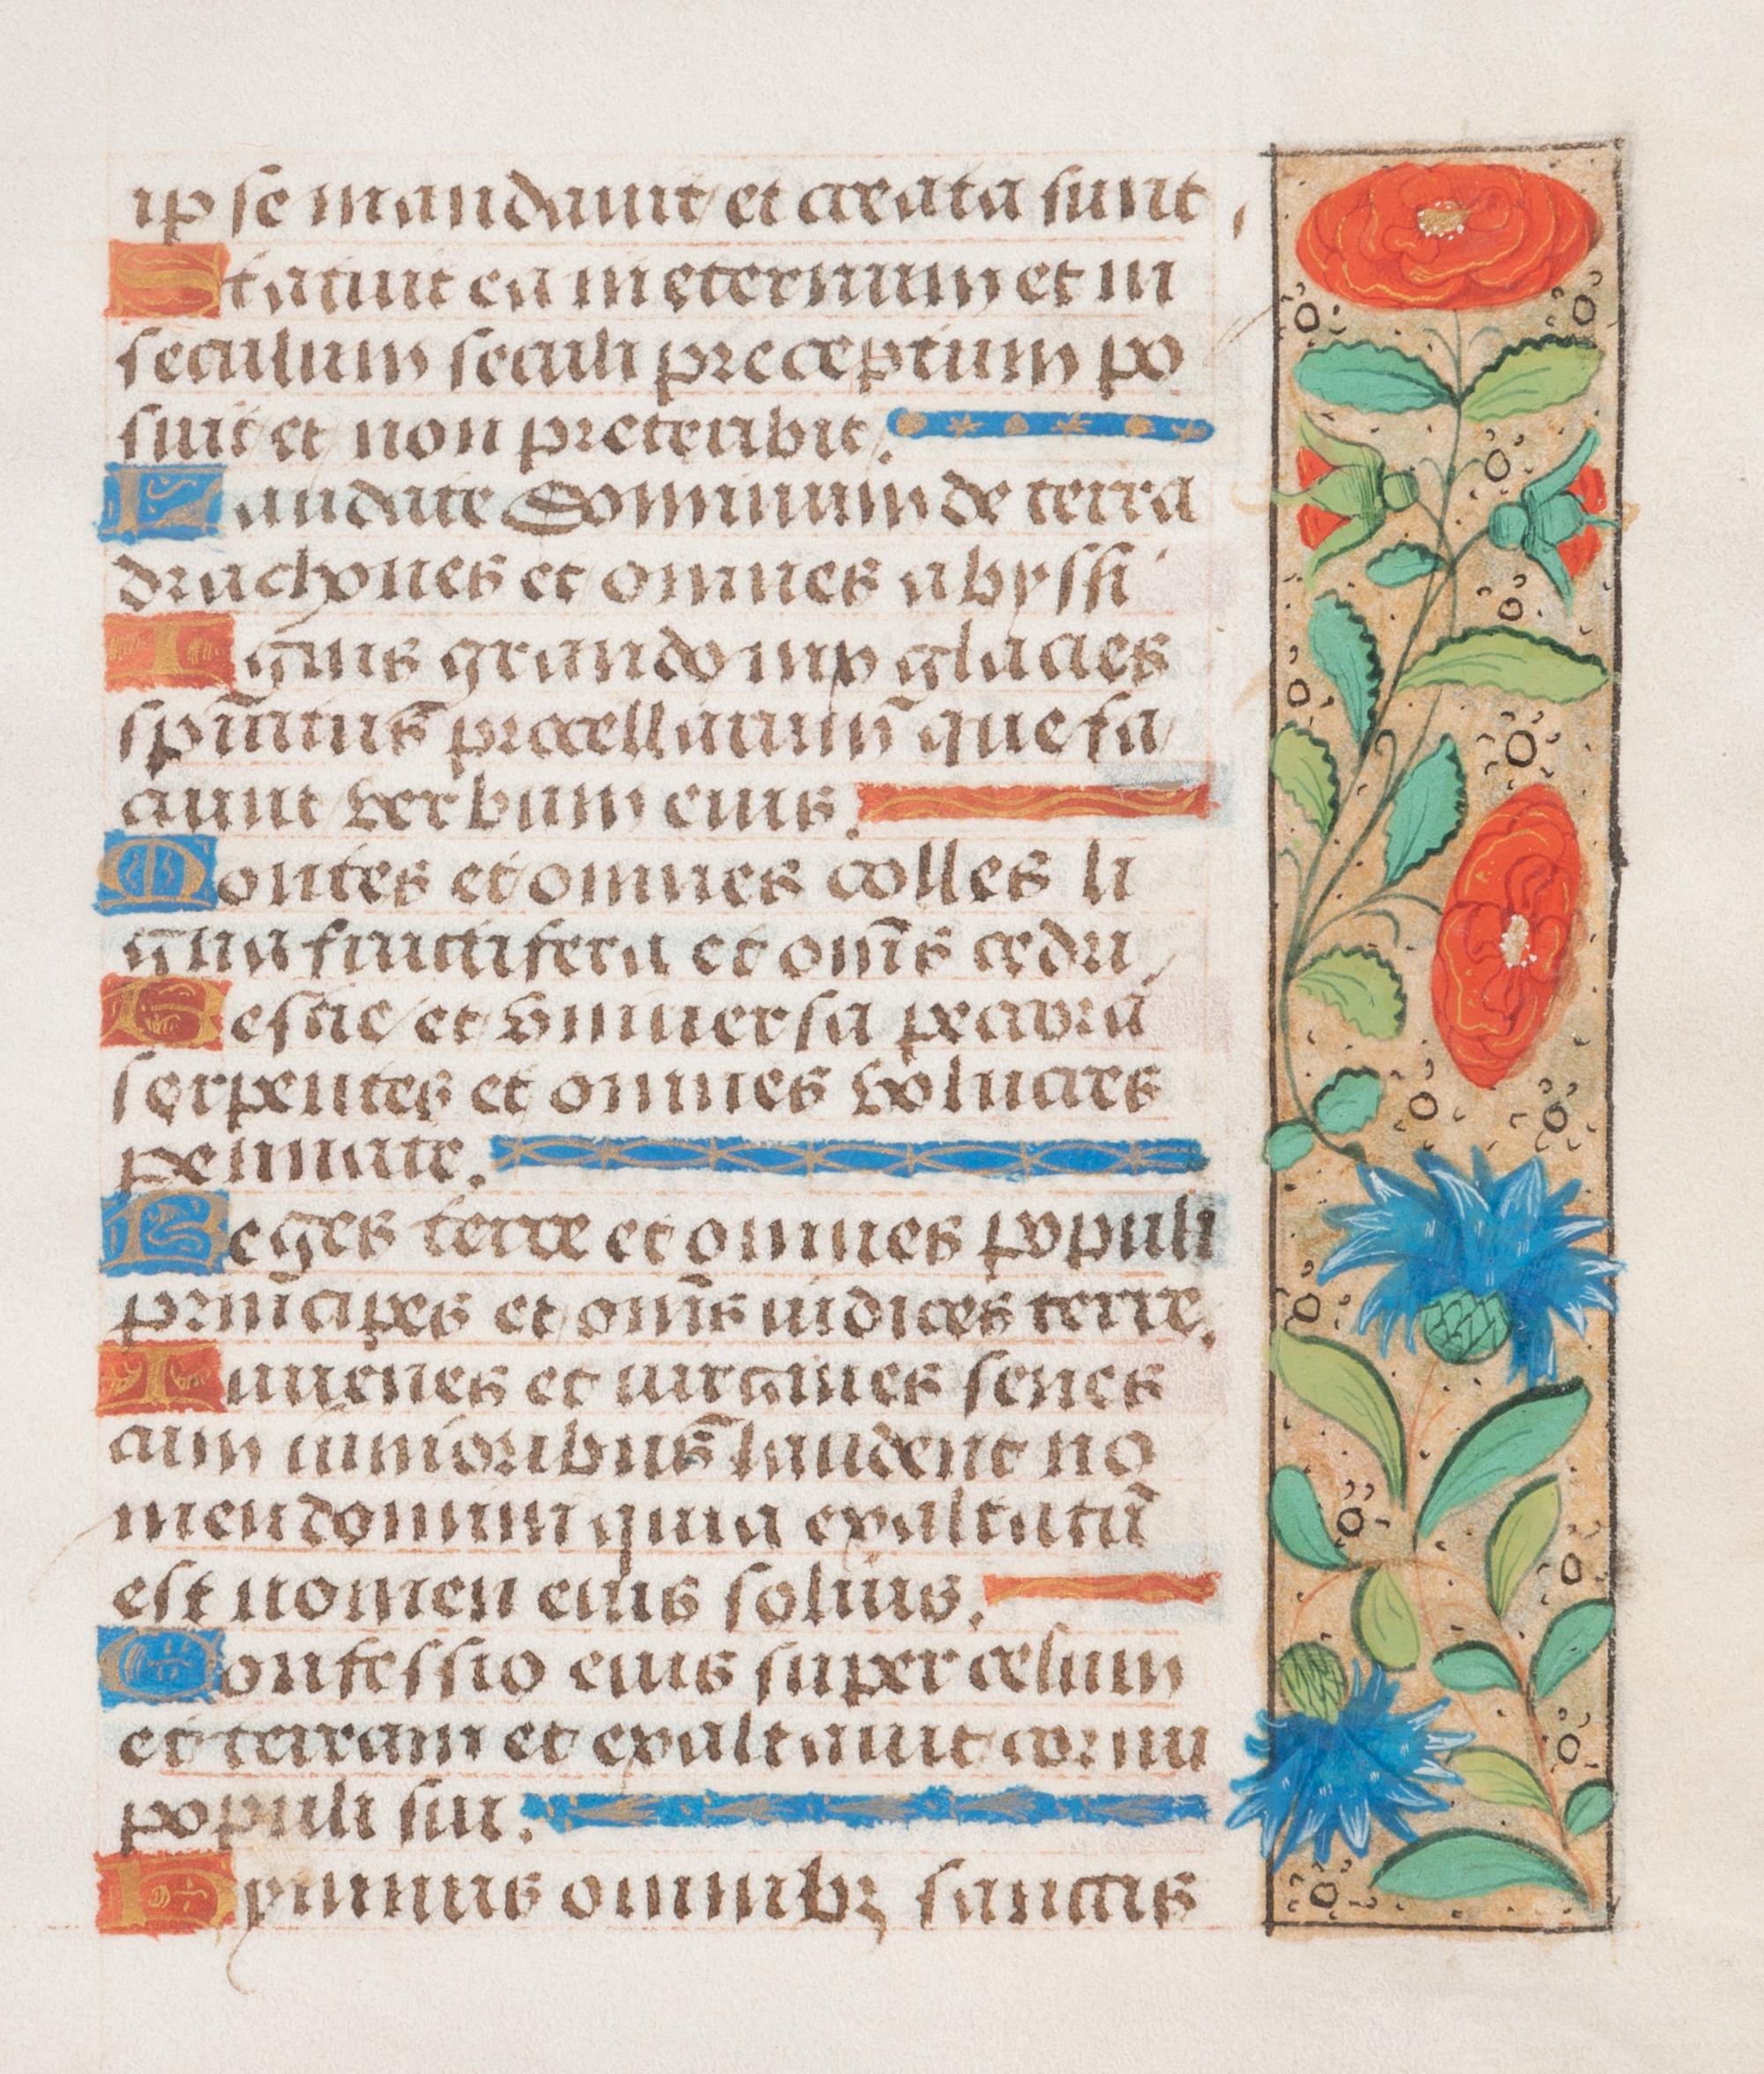 ipse mandauit et creata sunt
Statuit ea in eternum et in
seculum seculi preceptum po
suit et non preteribit.
Laudate dominum de terra
drachones et omnes abyssi
Ignis grando nix glacies
spiritus procellarum que fa
ciunt verbum eius.
Montes et omnes colles li
gna fructifera et om̄s cedri
Bestie et vniuersa pecora
serpentes et omnes volucres
pennate.
Reges terre et omnes populi
principes et om̄s iudices terre.
Iuuenes et uirgines senes
cum iunioribus laudent no
men domini quia exaltatū
est nomen eius solius.
Confessio eius super celum
et terram et exaltauit cornu
populi sui.
Hymnus omnibꝫ sanctis